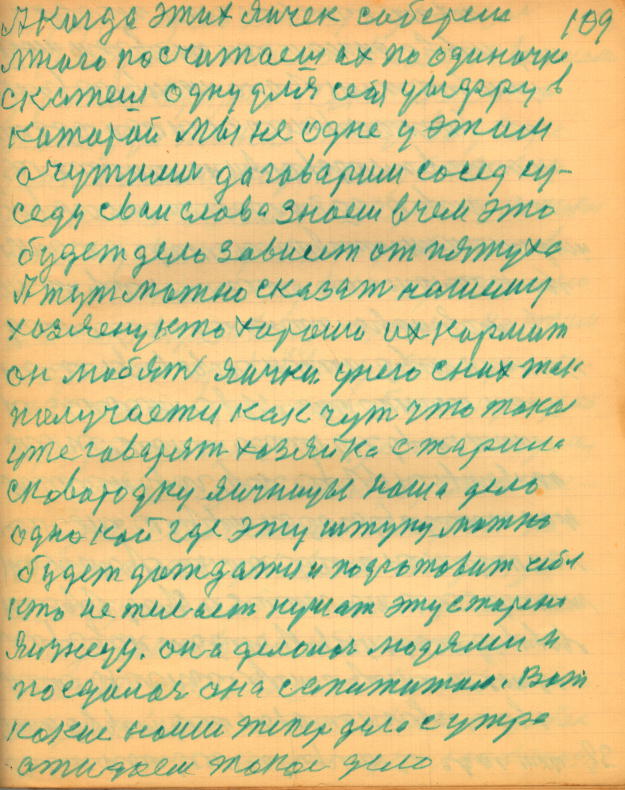 А когда этих яичек соберем 109
много посчитаеш их по одиночке
скажеш одну для себя цыфру в
которой мы не одне у этим
очутими даговарим сосед су-
седу сваи слова знаеш в чем это
будет дело зависет от пятуха
А тут можно сказат нашему
хозяену кто хорошо их кормит
он любят яички. унего сних так
получаети как чут что тако
уже говарят хозяйка старила
сковородку яичницы наша дело
одно кой где эту штуку можно
будет дождати и подготовит себя
кто не желает кушат эту старено
яизнецу. она делоная людями и
поедалоя она сапититом. Вот
какие наши тепер дела сутра
ожидаем такое дело